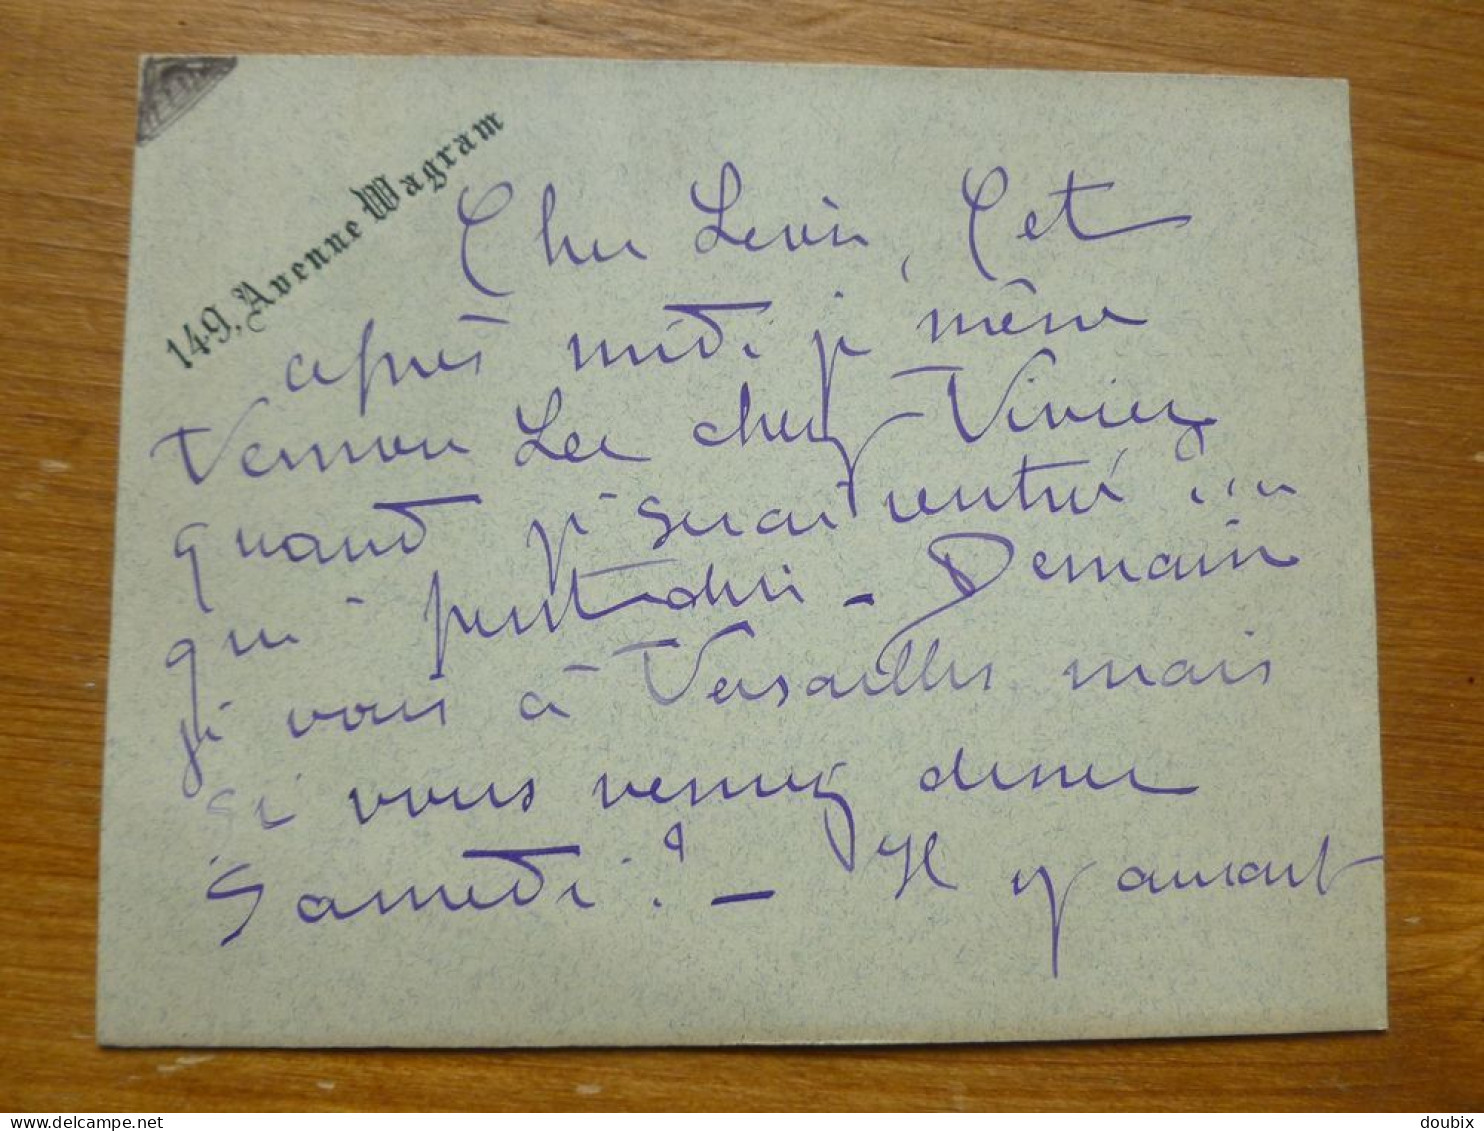 149, Avenue Wagram
Cher Levis, Cet
après midi je mène
Vernon Lee chez Viviez
quand je serai rentré
qui
je vais à Versailles mais
si vous veniez diner
Samedi ? — Il y aurait
- Demain
www.delcampe.net
doubix